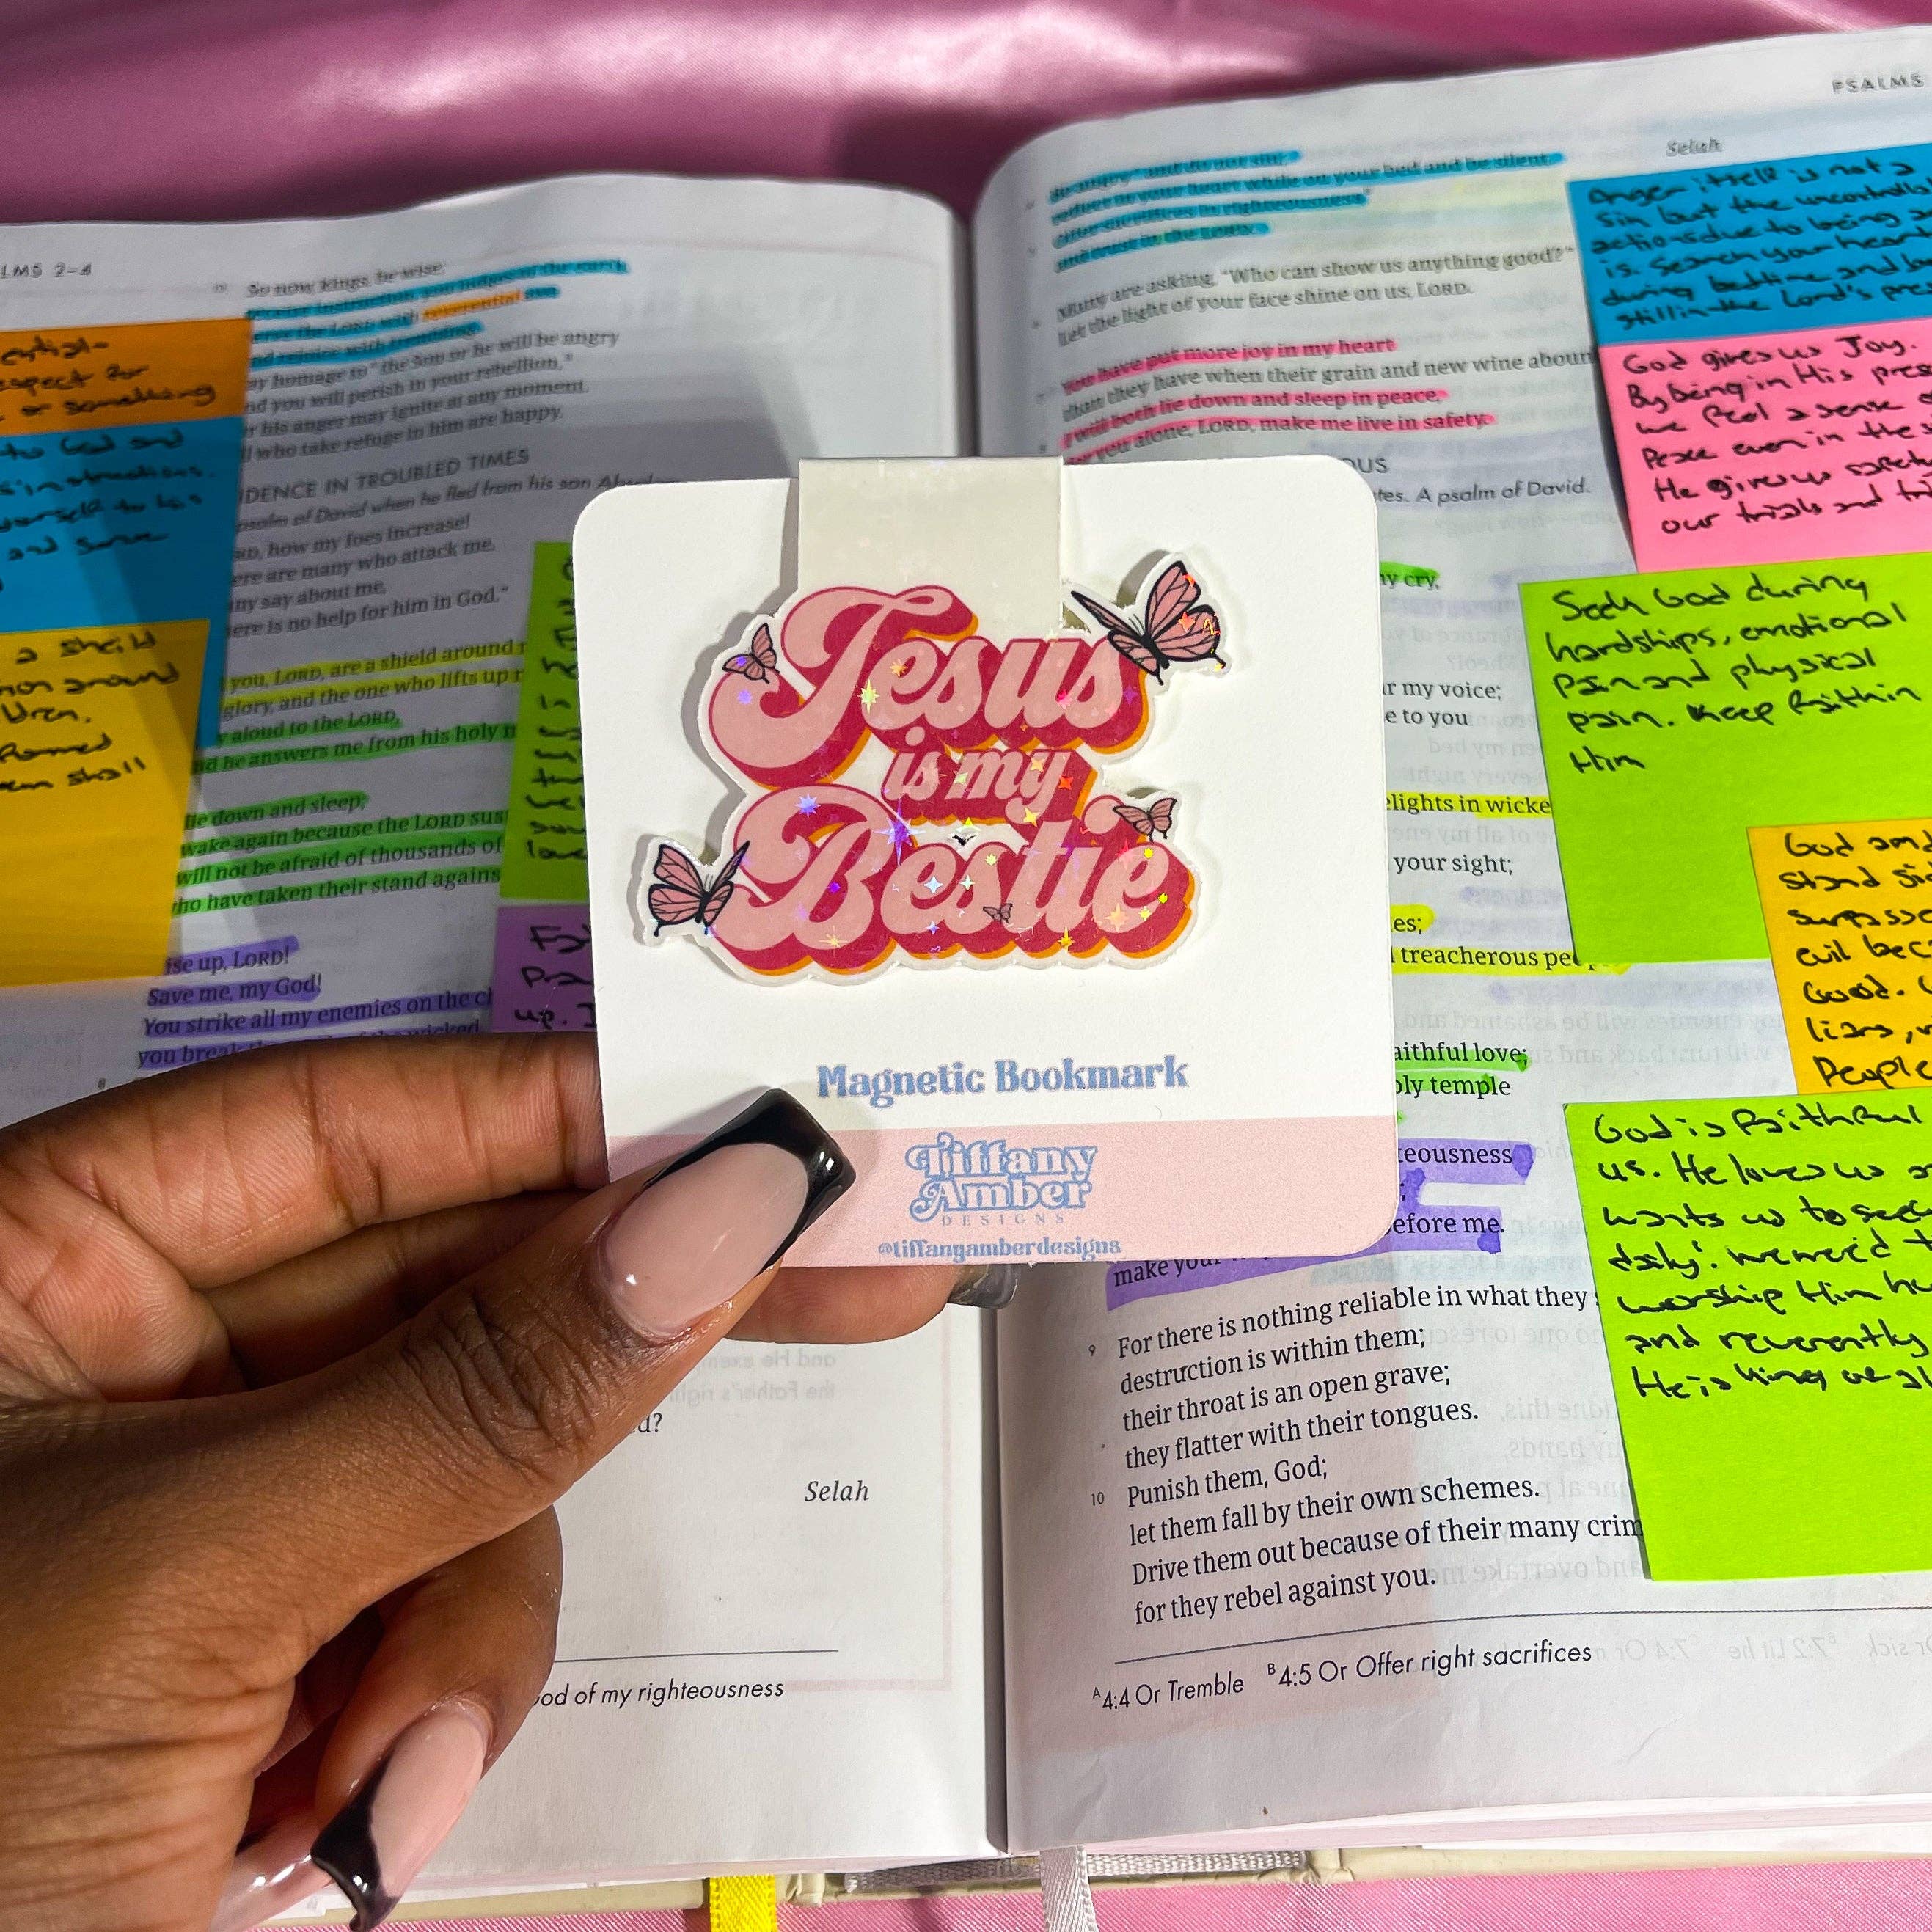 LMS 2-4
So now, kings, be wise;
receive instruction, you judges of the earth.
the LORD with reverential awe
nd rejoice with trembling.
ay homage to the Son or he will be angry
nd you will perish in your rebellion,
r his anger may ignite at any moment.
ll who take refuge in him are happy.
IDENCE IN TROUBLED TIMES
psalm of David when he fled from his son
how my foes increase!
ere are many who attack me.
ny say about me,
ere is no help for him in God."
you, LORD, are a shield around
glory, and the one who lifts up
aloud to the LORD,
nd he answers me from his holy
lie down and sleep;
wake again because the LORD sus
will not be afraid of thousands of
ho have taken their stand agains
ise up, LORD!
Save me, my God!
You strike all my enemies on the
you break
espect for
or something
to God and
instructions.
yourself to
and serve
a sheild
around
shall
up.
d?
Selah
od of my righteousness
PSALMS
Selah
Be angry and do not sin;
reflect in your heart while on your bed and be silent.
Offer sacrifices in righteousness
and trust in the LORD.
Many are asking, "Who can show us anything good?"
Let the light of your face shine on us, LORD.
You have put more joy in my heart
than they have when their grain and new wine aboun
I will both lie down and sleep in peace,
for you alone, LORD, make me live in safety.
OUS
tes. A psalm of David.
my cry,
r my voice;
e to you
elights in wicke
your sight;
es;
treacherous peo
aithful love;
oly temple
teousness
efore me.
make your
9 For there is nothing reliable in what they
destruction is within them;
their throat is an open grave;
they flatter with their tongues.
10 Punish them, God;
let them fall by their own schemes.
Drive them out because of their many crim
for they rebel against you.
A4:4 Or Tremble B4:5 Or Offer right sacrifices
Anger itself is not a
Sin but the uncontrolla
actions due to being
is. Search your heart
during bedtime and
still in the Lord's pres
God gives us Joy.
By being in His prese
we feel a sense
Peace even in the
He gives us safety
our trials and tri
Seek God during
hardships, emotional
pain and physical
pain. Keep faith in
Him
God
stand
surpass
evil bec
Good.
liars,
People
God is faithful
us. He loves us
wants us to seek
daily. we need t
worship Him
and reverently
He is king
Jesus
is my
Bestie
Magnetic Bookmark
Tiffany
Amber
DESIGNS
@tiffanyamberdesigns